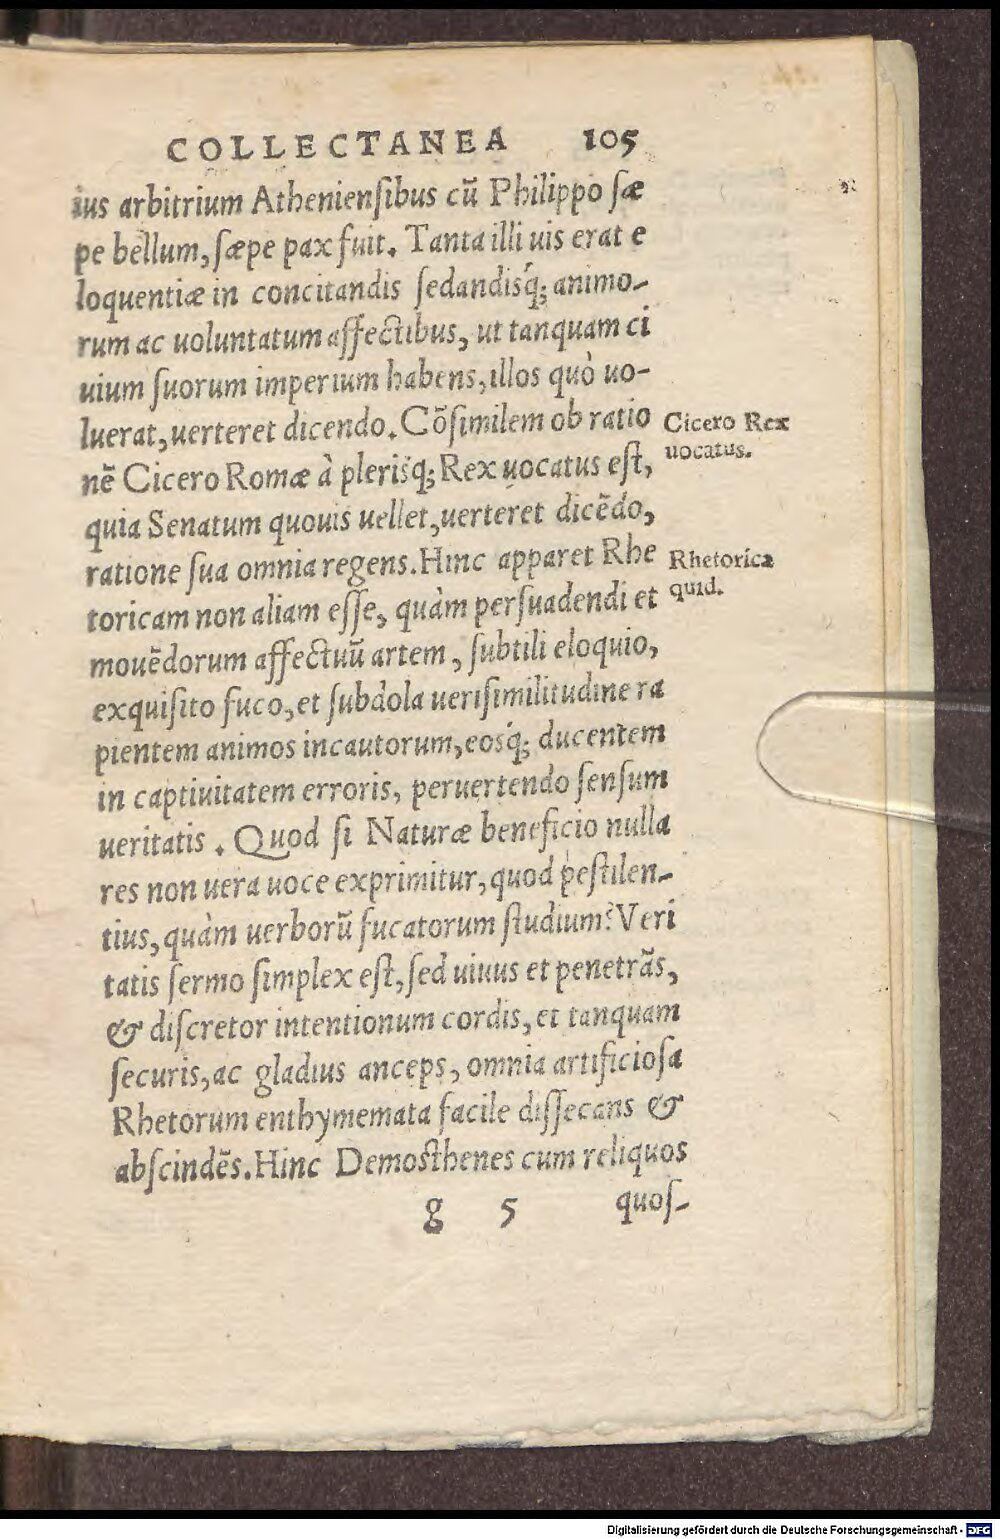 COLLECTANEA 105
ius arbitrium Atheniensibus cū Philippo sæ
pe bellum, sæpe pax fuit. Tanta illi uis erat e
loquentiæ in concitandis sedandisq́; animo-
rum ac uoluntatum affectibus, ut tanquam ci
uium suorum imperium habens, illos quò uo-
luerat, uerteret dicendo. Cōsimilem ob ratio
nē Cicero Romæ à plerisq́; Rex uocatus est,
Cicero Rex
uocatus.
quia Senatum quouis uellet, uerteret dicēdo,
ratione sua omnia regens. Hinc apparet Rhe
toricam non aliam esse, quàm persuadendi et
Rhetorica
quid.
mouēdorum affectuū artem, subtili eloquio,
exquisito fuco, et subdola uerisimilitudine ra
pientem animos incautorum, eosq́; ducentem
in captiuitatem erroris, peruertendo sensum
ueritatis. Quod si Naturæ beneficio nulla
res non uera uoce exprimitur, quod pestilen-
tius, quàm uerborū fucatorum studium? Veri
tatis sermo simplex est, sed uiuus et penetrãs,
& discretor intentionum cordis, et tanquam
securis, ac gladius anceps, omnia artificiosa
Rhetorum enthymemata facile dissecans &
abscindēs. Hinc Demosthenes cum reliquos
g 5 quos-
Digitalisierung gefördert durch die Deutsche Forschungsgemeinschaft - DFG